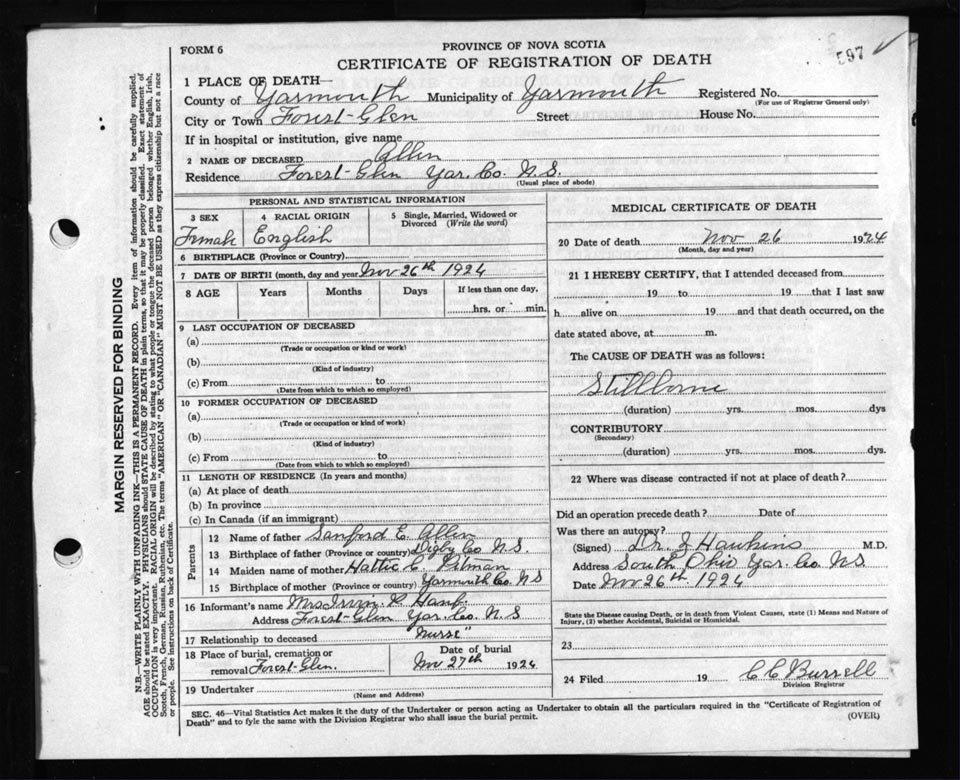 597
FORM 6
PROVINCE OF NOVA SCOTIA
CERTIFICATE OF REGISTRATION OF DEATH
1 PLACE OF DEATH—
County of Yarmouth Municipality of Yarmouth Registered No.
(For use of Registrar General only)
City or Town Forest-Glen Street House No.
If in hospital or institution, give name
2 NAME OF DECEASED Allen
Residence Forest-Glen Yar. Co. N.S.
(Usual place of abode)
PERSONAL AND STATISTICAL INFORMATION
3 SEX 4 RACIAL ORIGIN 5 Single, Married, Widowed or Divorced (Write the word)
Female English
6 BIRTHPLACE (Province or Country)
7 DATE OF BIRTH (month, day and year) Nov 26th 1924
8 AGE Years Months Days If less than one day,
hrs. or min.
9 LAST OCCUPATION OF DECEASED
(a)
(Trade or occupation or kind or work)
(b)
(Kind of industry)
(c) From to
(Date from which to which so employed)
10 FORMER OCCUPATION OF DECEASED
(a)
(Trade or occupation or kind of work)
(b)
(Kind of industry)
(c) From to
(Date from which to which so employed)
11 LENGTH OF RESIDENCE (In years and months)
(a) At place of death
(b) In province
(c) In Canada (if an immigrant)
Parents
12 Name of father Sanford E. Allen
13 Birthplace of father (Province or country) Digby Co N.S.
14 Maiden name of mother Hattie C. Pitman
15 Birthplace of mother (Province or country) Yarmouth Co. N S
16 Informant's name Mrs Irvin R
Address Forest-Glen Yar. Co. N.S
17 Relationship to deceased "Nurse"
18 Place of burial, cremation or Date of burial
removal Forest-Glen. Nov 27th 1924
19 Undertaker
(Name and Address)
MEDICAL CERTIFICATE OF DEATH
20 Date of death Nov 26 1924
(Month, day and year)
21 I HEREBY CERTIFY, that I attended deceased from
19 to 19 that I last saw
h alive on 19 and that death occurred, on the
date stated above, at m.
The CAUSE OF DEATH was as follows:
Stillborne
(duration) yrs. mos. dys
CONTRIBUTORY
(Secondary)
(duration) yrs. mos. dys.
22 Where was disease contracted if not at place of death?
Did an operation precede death? Date of
Was there an autopsy?
(Signed) Dr. J Hawkins M.D.
Address South Ohio Yar. Co NS
Date Nov 26th 1924
State the Disease causing Death, or in death from Violent Causes, state (1) Means and Nature of
Injury, (2) whether Accidental, Suicidal or Homicidal.
23
24 Filed 19 C C Burrell
Division Registrar
SEC. 46—Vital Statistics Act makes it the duty of the Undertaker or person acting as Undertaker to obtain all the particulars required in the "Certificate of Registration of
Death" and to fyle the same with the Division Registrar who shall issue the burial permit. (OVER)
MARGIN RESERVED FOR BINDING
N.B.—WRITE PLAINLY WITH UNFADING INK—THIS IS A PERMANENT RECORD. Every item of information should be carefully supplied.
AGE should be stated EXACTLY. PHYSICIANS should STATE CAUSE OF DEATH in plain terms, so that it may be properly classified. Exact statement of
OCCUPATION is very important. RACIAL ORIGIN will be described by stating to what people or tongue the deceased person belonged whether English, Irish,
Scotch, French, German, Russian, Ruthenian, etc. The terms "AMERICAN" OR "CANADIAN" MUST NOT BE USED as they express citizenship but not a race
or people. See instructions on back of Certificate.